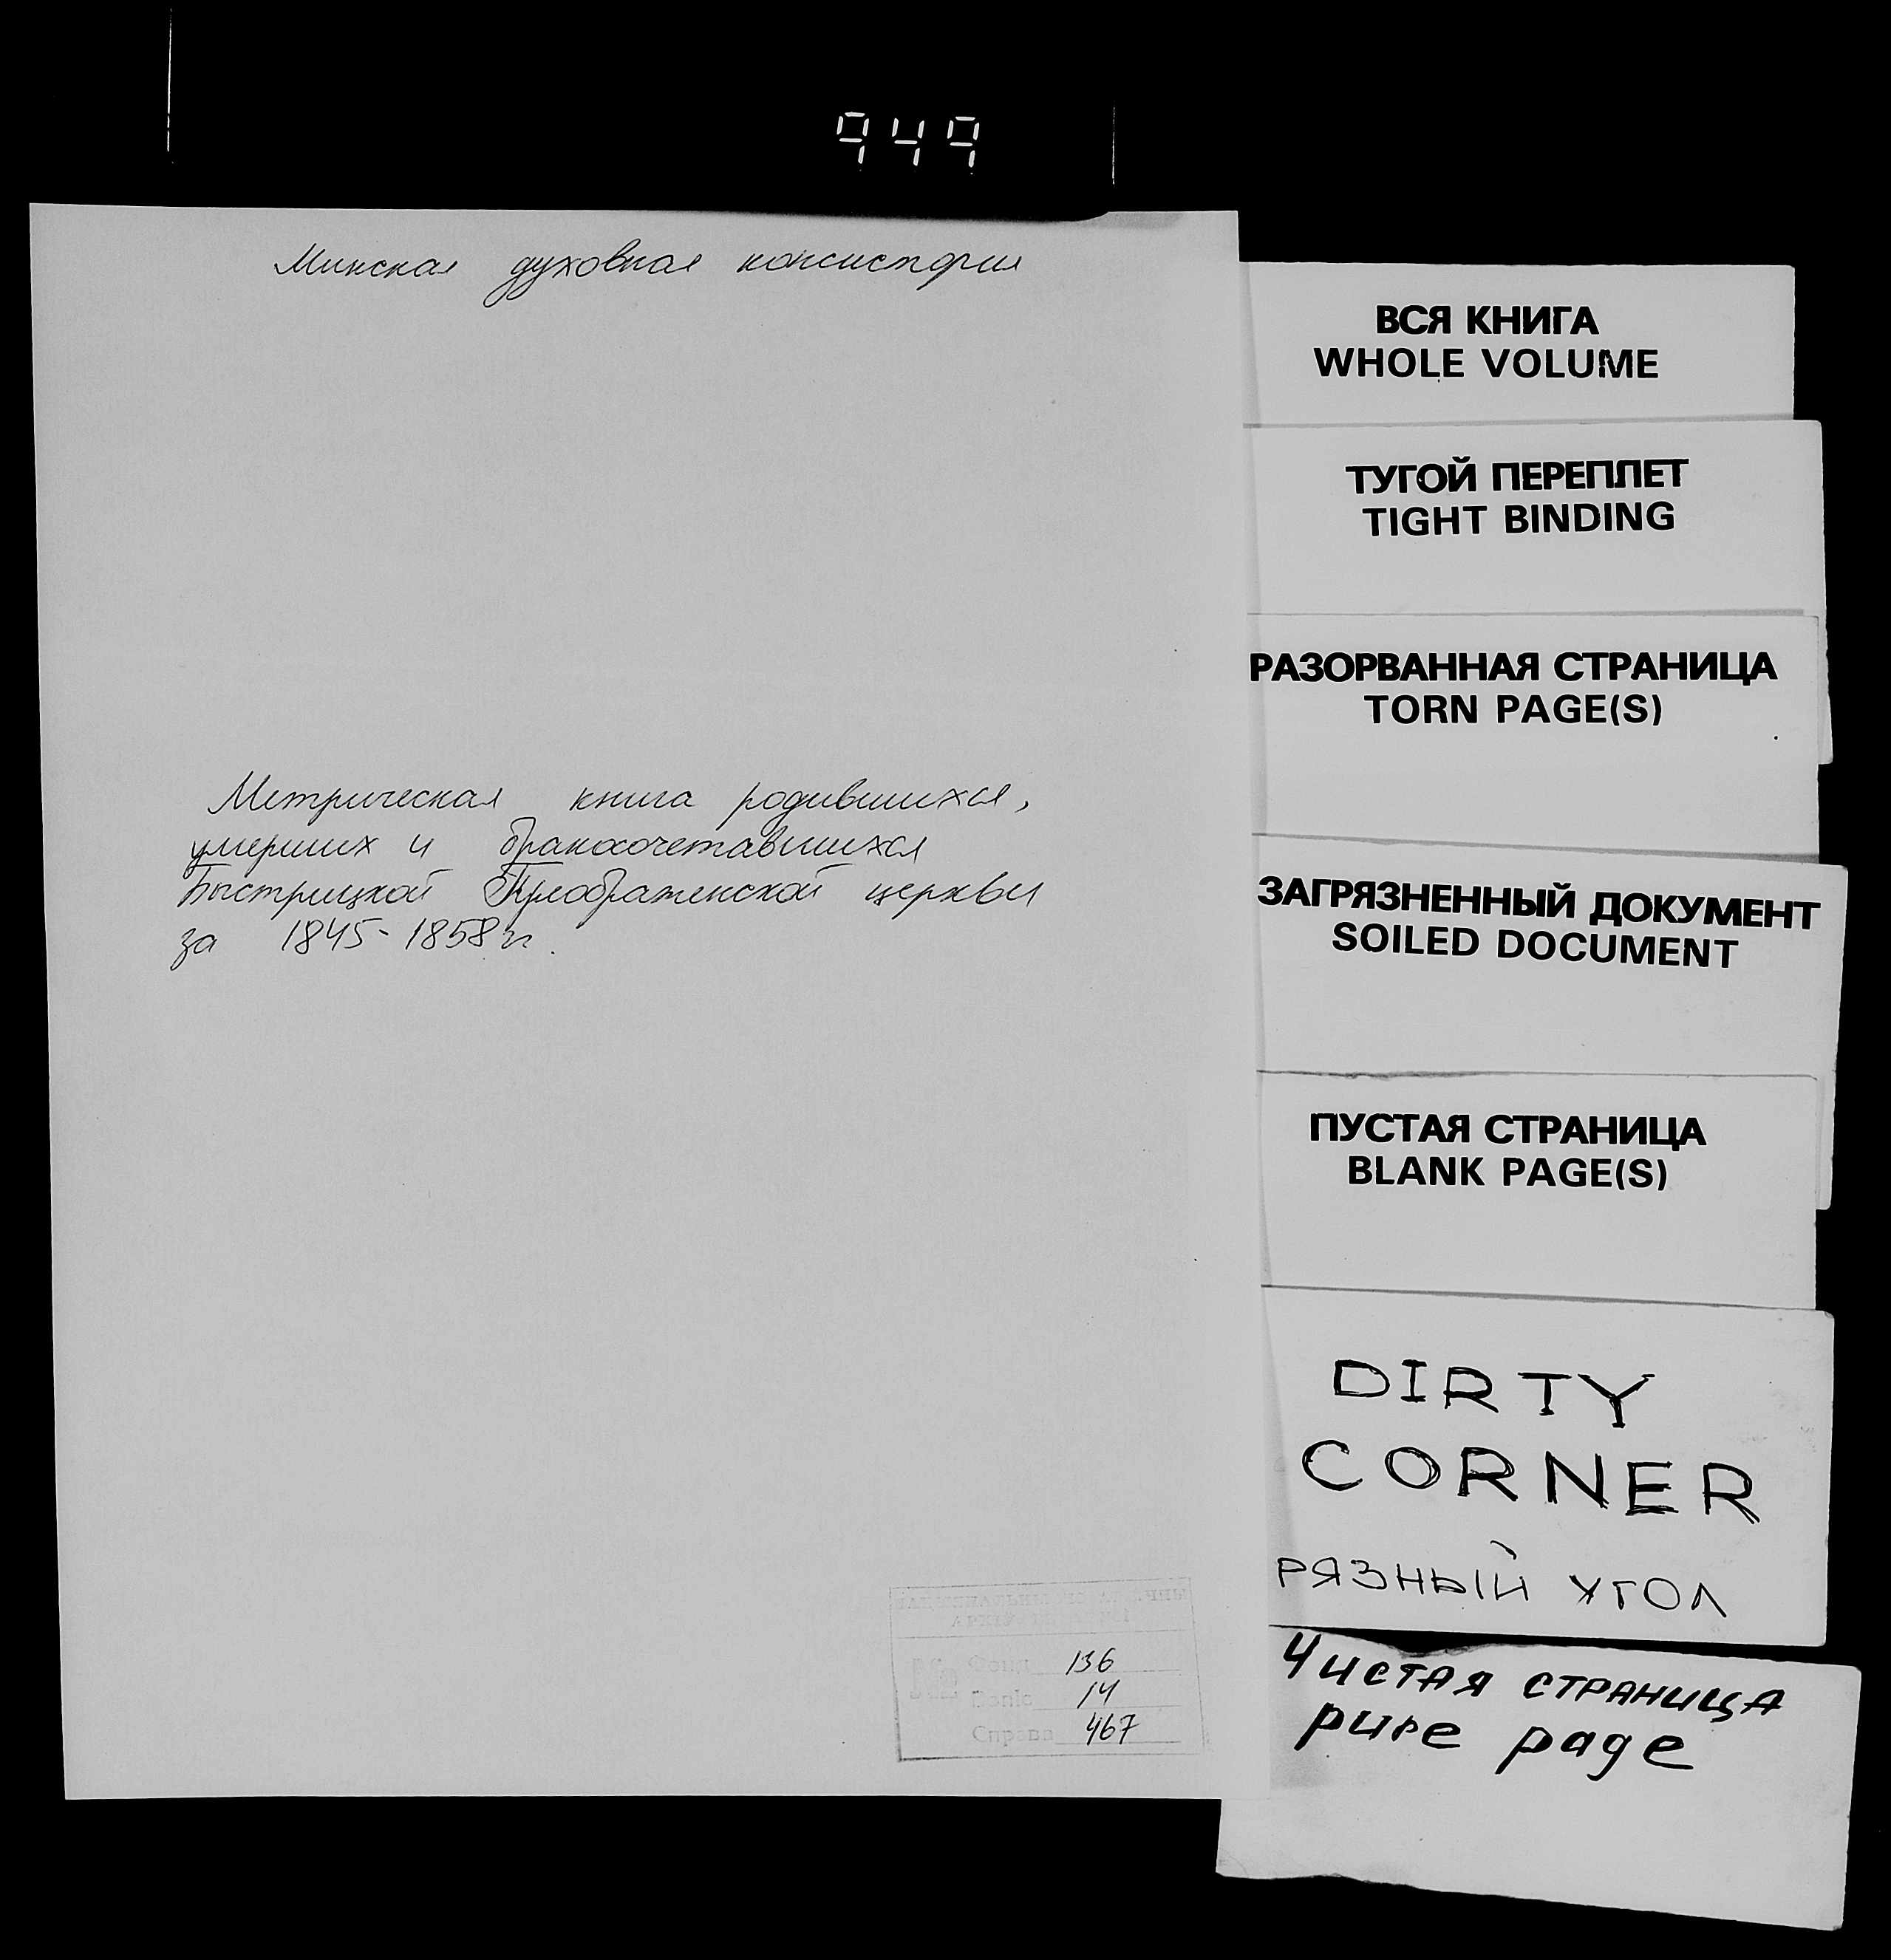 949
Минская духовная консистория
Метрическая книга родившихся,
умерших и бракосочетавшихся
Быстрицкой Преображенской церкви
за 1845-1858 гг.
Фонд 136
Вопіс 14
Справа 467
ВСЯ КНИГА
WHOLE VOLUME
ТУГОЙ ПЕРЕПЛЕТ
TIGHT BINDING
РАЗОРВАННАЯ СТРАНИЦА
TORN PAGE(S)
ЗАГРЯЗНЕННЫЙ ДОКУМЕНТ
SOILED DOCUMENT
ПУСТАЯ СТРАНИЦА
BLANK PAGE(S)
DIRTY
CORNER
РЯЗНЫЙ УГОЛ
Чистая страница
pure page